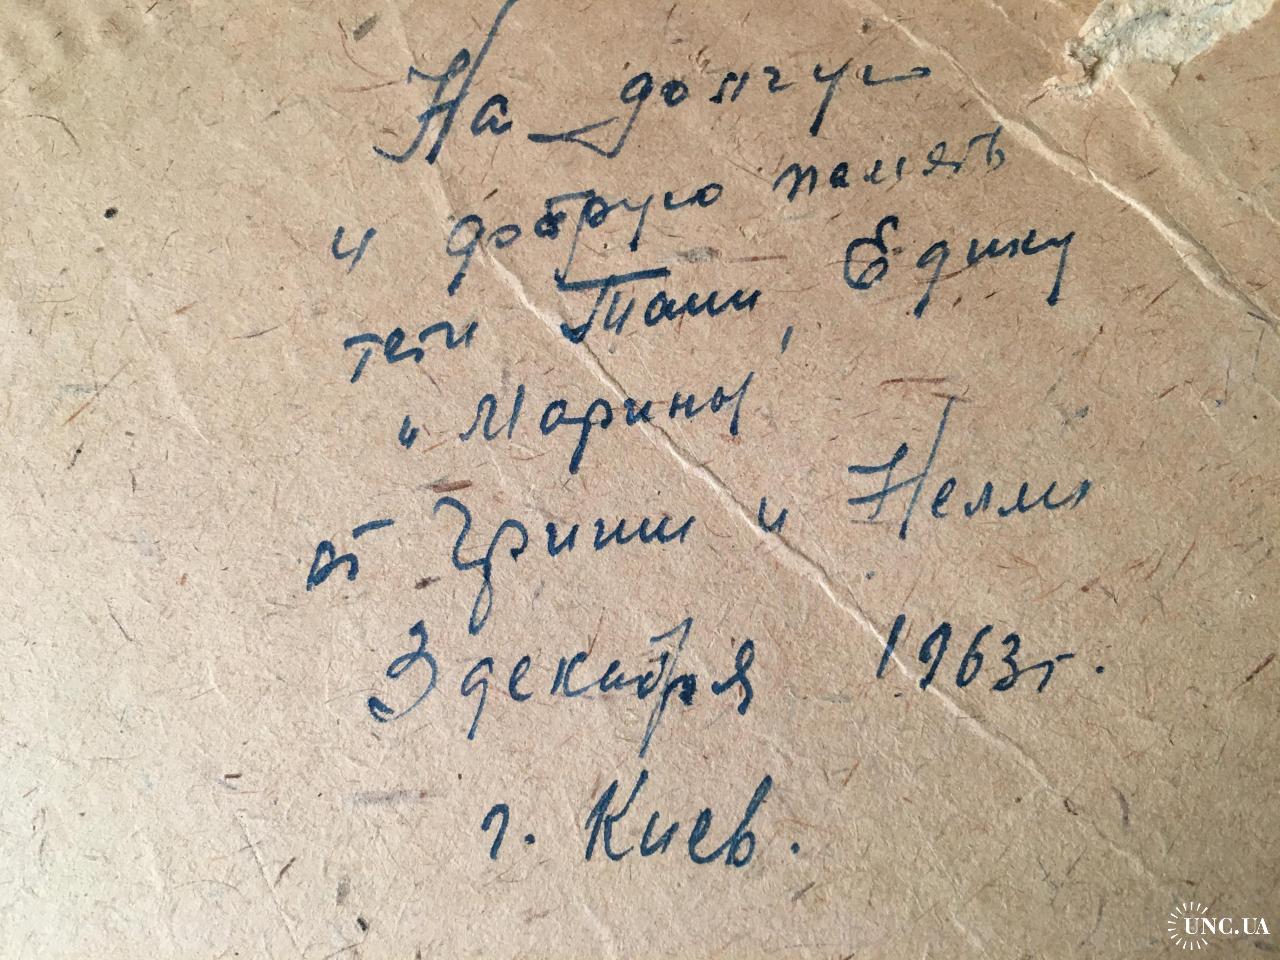 На долгую
и добрую память
тети Тани, Едику
и Марины
от Гриши и Нелли
3 декабря 1963 г.
г. Киев.
UNC.UA